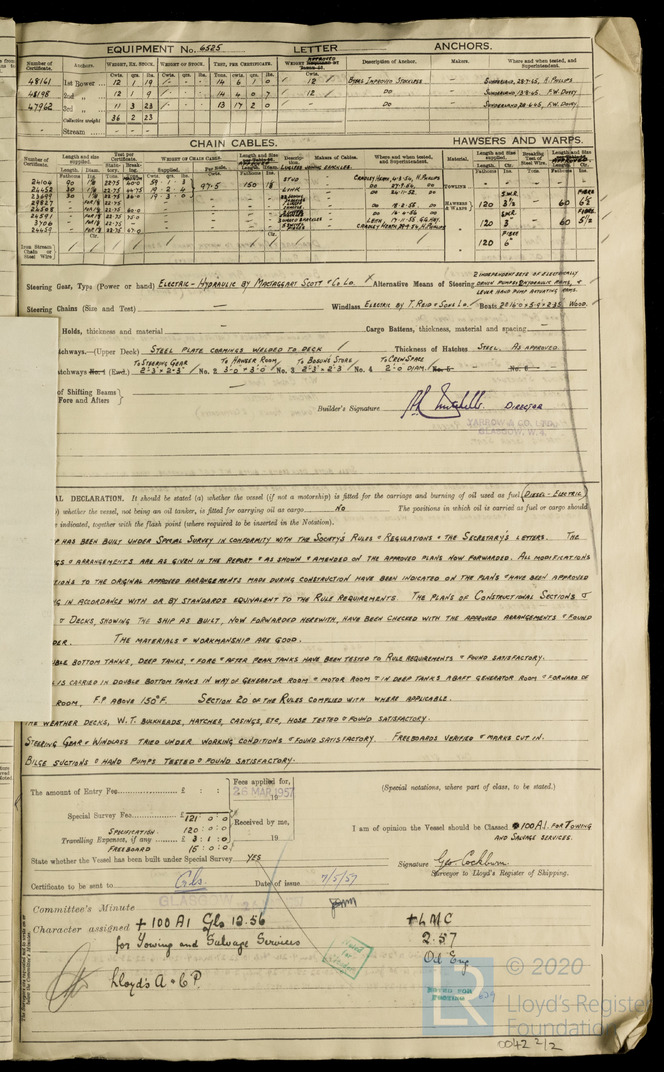 EQUIPMENT No. 6525 LETTER ANCHORS.
Number of Certificate. Anchors. WEIGHT, EX. STOCK. WEIGHT OF STOCK. TEST, PER CERTIFICATE. WEIGHT APPROVED Description of Anchor. Makers. Where and when tested, and Superintendent.
Cwts. qrs. lbs. Cwts. qrs. lbs. Tons. cwts. qrs. lbs. Cwts.
48161 1st Bower 12 1 19 14 6 1 0 12 BYERS IMPROVED STOCKLESS SUNDERLAND, 28.7.45, H. PHILLIPS
48198 2nd „ 12 1 9 14 4 0 7 12 DO SUNDERLAND, 13.8.45, F.W. DAVEY.
47962 3rd „ 11 3 23 13 17 2 0 DO SUNDERLAND, 20.6.45, F.W. DAVEY.
Collective weight 36 2 23
Stream
CHAIN CABLES. HAWSERS AND WARPS.
Number of Certificate. Length and size supplied. Test per Certificate. WEIGHT OF CHAIN CABLE. Length and Size Description. Makers of Cables. Where and when tested, and Superintendent. Material. Length and Size supplied. Breaking Test of Steel Wire. Length and Size
24104 90 22.75 59 1 3 97.5 150 STUD CRADLEY HEATH, H. PHILLIPS TOWLINE
24452 30 22.75 19 2 4 LINK DO 27.9.54, DO
30 22.75 19 3 0 DO 24.11.52 DO HAWSERS & WARPS 120 3½ S.W.R. 60 6½ FIBRE
29827 22.75
24508 22.75 DO 18.2.55 DO 120 3" S.W.R. 60 5½ FIBRE
24591 22.75 DO DO
3706 22.75 LEITH, 17.11.55
24459 22.75 CRADLEY HEATH H. PHILLIPS 120 6" FIBRE
Iron Stream Chain or Steel Wire
Steering Gear, Type (Power or hand) ELECTRIC-HYDRAULIC BY MACTAGGART SCOTT & CO LD. Alternative Means of Steering 2 INDEPENDENT SETS OF ELECTRICALLY DRIVEN PUMPS & HYDRAULIC RAMS, & LEVER HAND PUMP ACTUATING RAMS.
Steering Chains (Size and Test) Windlass ELECTRIC BY T. REID & SONS LD. Boats WOOD.
Holds, thickness and material Cargo Battens, thickness, material and spacing
tchways.—(Upper Deck) STEEL PLATE COAMINGS WELDED TO DECK Thickness of Hatches STEEL. AS APPROVED
TO STEERING GEAR TO HAWSER ROOM TO BOSUNS STORE TO CREW SPACE
atchways No. 1 (Fwd.) 2'-3" × 2'-3" No. 2 3'-0" × 3'-0" No. 3 2'-3" × 2'-3 No. 4 2'-0 DIAM. No. 5 No. 6
of Shifting Beams
Fore and Afters
Builder's Signature DIRECTOR
YARROW & CO. LTD.
GLASGOW, W.4.
AL DECLARATION. It should be stated (a) whether the vessel (if not a motorship) is fitted for the carriage and burning of oil used as fuel (DIESEL-ELECTRIC)
) whether the vessel, not being an oil tanker, is fitted for carrying oil as cargo NO The positions in which oil is carried as fuel or cargo should
e indicated, together with the flash point (where required to be inserted in the Notation).
P HAS BEEN BUILT UNDER SPECIAL SURVEY IN CONFORMITY WITH THE SOCIETY'S RULES & REGULATIONS & THE SECRETARY'S LETTERS. THE
GS & ARRANGEMENTS ARE AS GIVEN IN THE REPORT & AS SHOWN & AMENDED ON THE APPROVED PLANS NOW FORWARDED. ALL MODIFICATIONS
TIONS TO THE ORIGINAL APPROVED ARRANGEMENTS MADE DURING CONSTRUCTION HAVE BEEN INDICATED ON THE PLANS & HAVE BEEN APPROVED
G IN ACCORDANCE WITH OR BY STANDARDS EQUIVALENT TO THE RULE REQUIREMENTS. THE PLANS OF CONSTRUCTIONAL SECTIONS &
& DECKS, SHOWING THE SHIP AS BUILT, NOW FORWARDED HEREWITH, HAVE BEEN CHECKED WITH THE APPROVED ARRANGEMENTS & FOUND
DER. THE MATERIALS & WORKMANSHIP ARE GOOD.
BLE BOTTOM TANKS, DEEP TANKS, & FORE & AFTER PEAK TANKS HAVE BEEN TESTED TO RULE REQUIREMENTS & FOUND SATISFACTORY.
IS CARRIED IN DOUBLE BOTTOM TANKS IN WAY OF GENERATOR ROOM & MOTOR ROOM & IN DEEP TANKS ABAFT GENERATOR ROOM & FORWARD OF
ROOM, F.P. ABOVE 150°F. SECTION 20 OF THE RULES COMPLIED WITH WHERE APPLICABLE.
THE WEATHER DECKS, W.T. BULKHEADS, HATCHES, CASINGS, ETC, HOSE TESTED & FOUND SATISFACTORY.
STEERING GEAR & WINDLASS TRIED UNDER WORKING CONDITIONS & FOUND SATISFACTORY. FREEBOARDS VERIFIED & MARKS CUT IN.
BILGE SUCTIONS & HAND PUMPS TESTED & FOUND SATISFACTORY.
The amount of Entry Fee £ : : Fees applied for, 26 MAR 1957 19
(Special notations, where part of class, to be stated.)
Special Survey Fee £ 121 : 0 : 0 Received by me,
SPECIFICATION 120 : 0 : 0
Travelling Expenses, if any £ 3 : 1 : 0 19
FREEBOARD 15 : 0 : 0
I am of opinion the Vessel should be Classed 100A1. FOR TOWING AND SALVAGE SERVICES.
State whether the Vessel has been built under Special Survey YES
Signature Geo. Cockburn
Surveyor to Lloyd's Register of Shipping.
Certificate to be sent to Gls. Date of issue 7/5/57
GLASGOW
Committee's Minute
Character assigned + 100 A1 Gls 12.56
for Towing and Salvage Services
Lloyd's A & C P.
+ LMC
2.57
Oil Eng.
NOTED FOR POSTING
© 2020
Lloyd's Register
Foundation
0042 2/2